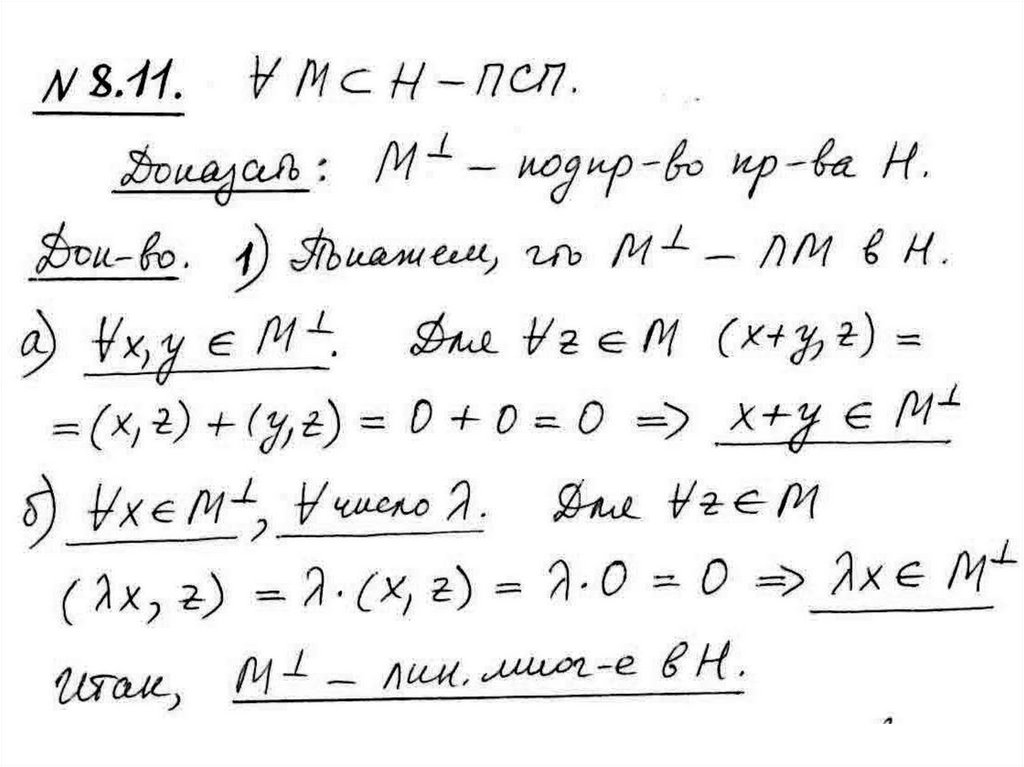 N 8.11. ∀ M ⊂ H – ПСП.
Доказать: M⊥ – подпр-во пр-ва H.
Док-во. 1) Покажем, что M⊥ – ЛМ в H.
а) ∀x, y ∈ M⊥. Для ∀z ∈ M (x+y, z) =
= (x, z) + (y, z) = 0 + 0 = 0 => x+y ∈ M⊥
б) ∀x ∈ M⊥, ∀ число λ. Для ∀z ∈ M
(λx, z) = λ·(x, z) = λ·0 = 0 => λx ∈ M⊥
Итак, M⊥ – лин. мног-е в H.